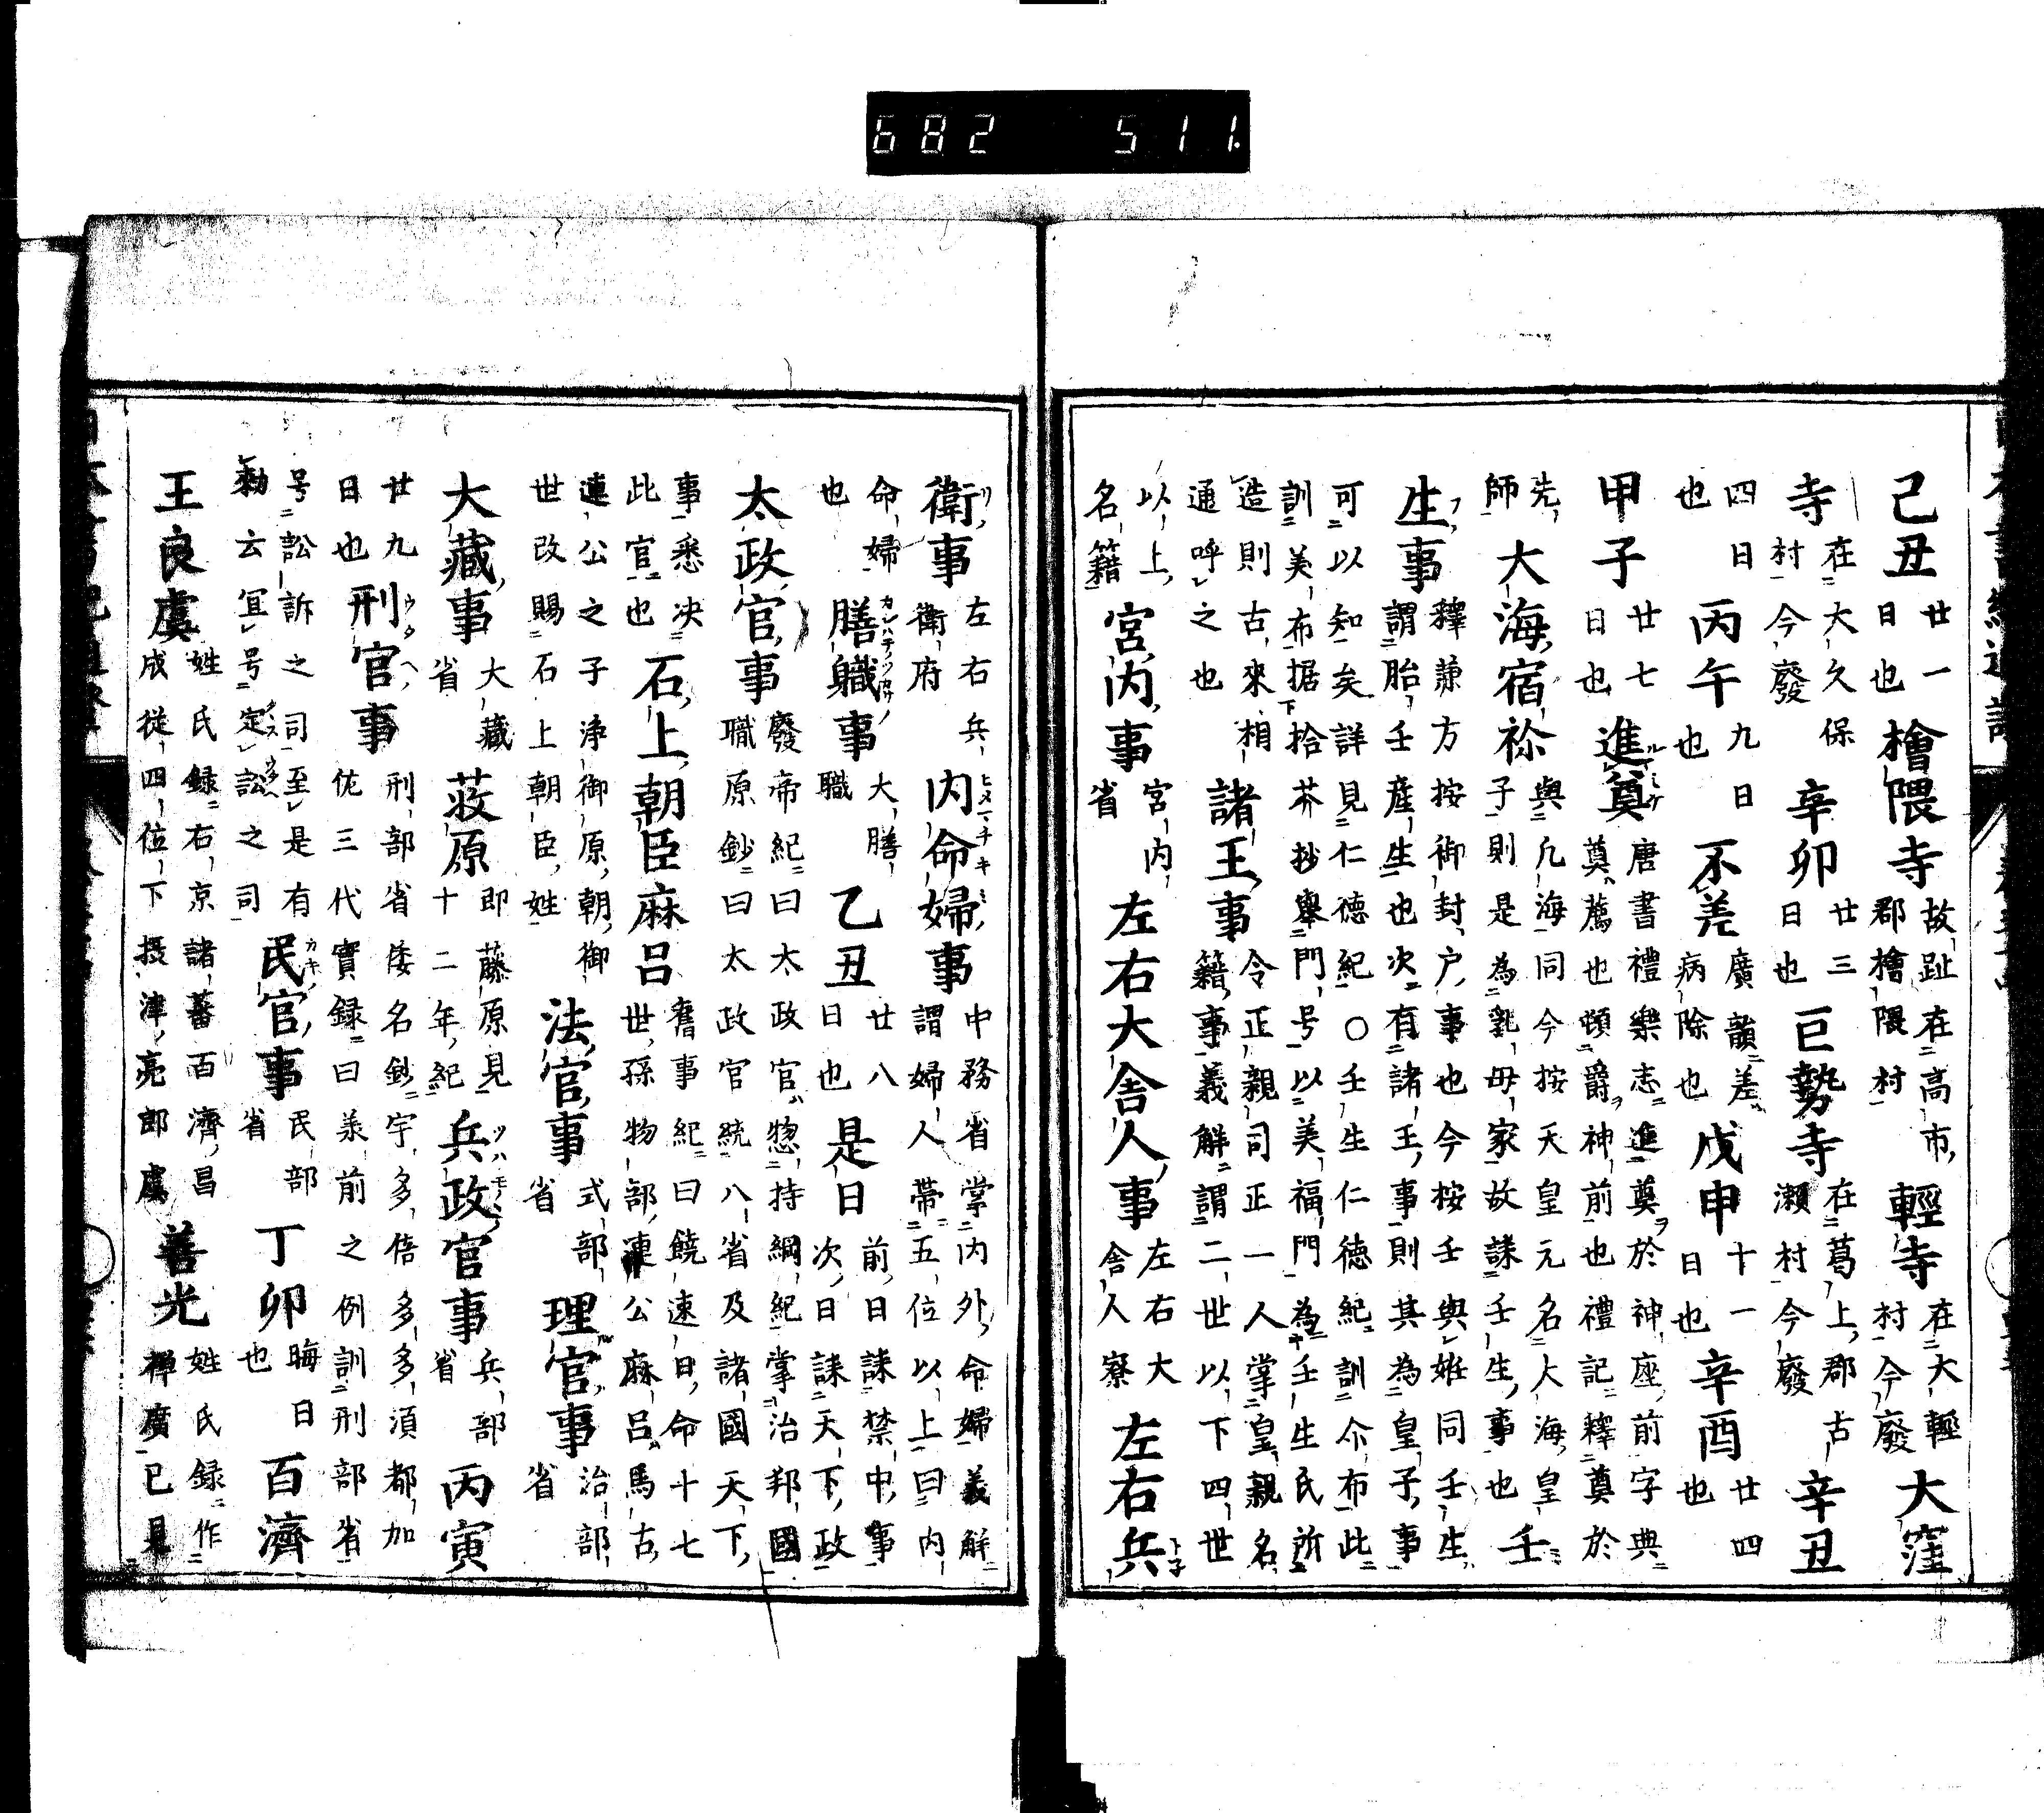 682 511.
己丑廿一日也檜隈寺故趾在高市郡檜隈村輕寺在大輕村今廢大窪
寺在大久保村今廢辛卯廿三日也巨勢寺在葛上郡古瀬村今廢辛丑
四日也丙午九日也不差廣韻差病除也戊申十一日也辛酉廿四也
甲子廿七日也進奠唐書禮樂志進奠於神座前字典奠薦也頓爵神前也禮記釋奠於
先師大海宿祢與凡海同今按天皇元名大海皇子則是為乳母家故誄壬生事也壬
生事釋兼方按御封戸事也今按壬與姙同壬生謂胎壬産生也次有諸王事則其為皇子事
可以知矣詳見仁德紀〇壬生仁德紀訓尒布此訓美布据拾芥抄舉門号以美福門為壬生氏所
造則古來相通呼之也諸王事令正親司正一人掌皇親名籍事義解謂二世以下四世
以上名籍宮内事宮内省左右大舎人事左右大舎人寮左右兵
衛事左右兵衛府内命婦事中務省掌内外命婦義解謂婦人帯五位以上曰内
命婦也膳職事大膳職乙丑廿八日也是日前日誄禁中事次日誄天下政
太政官事廢帝紀曰太政官惣持綱紀掌治邦國職原鈔曰太政官統八省及諸國天下
事悉決此官也石上朝臣麻呂舊事紀曰饒速日命十七世孫物部連公麻呂馬古
連公之子浄御原朝御世改賜石上朝臣姓法官事式部省理官事治部省
大藏事大藏省蔱原即藤原見十二年紀兵政官事兵部省丙寅
廿九日也刑官事刑部省倭名鈔宇多倍多多須都加佐三代實録曰羕前之例訓刑部省
号訟訴之司至是有勅云冝号定訟之司民官事民部省丁卯晦日也百濟
王良虞姓氏録右京諸蕃百濟昌成從四位下摂津亮郎虞善光姓氏録作禪廣已見